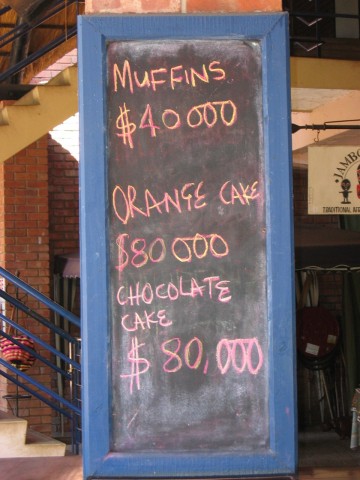 MUFFINS
$40000
ORANGE CAKE
$80000
CHOCOLATE
CAKE
$80,000
JAMBO
TRADITIONAL